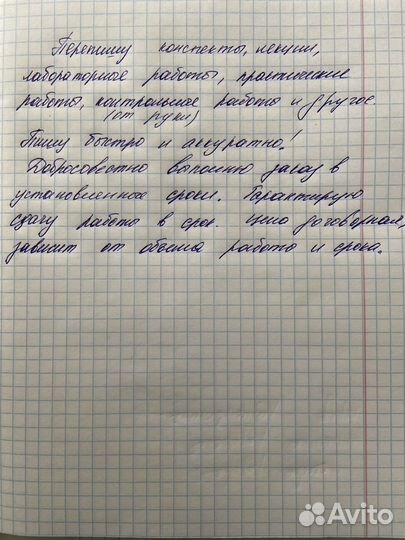 Перепишу конспекты, лекции,
лабораторные работы, практические
работы, контрольные работы и другое
(от руки)
Пишу быстро и аккуратно!
Добросовестно выполню заказ в
установленные сроки. Гарантирую
сдачу работы в срок. Цена договорная,
зависит от объема работы и срока.
Avito